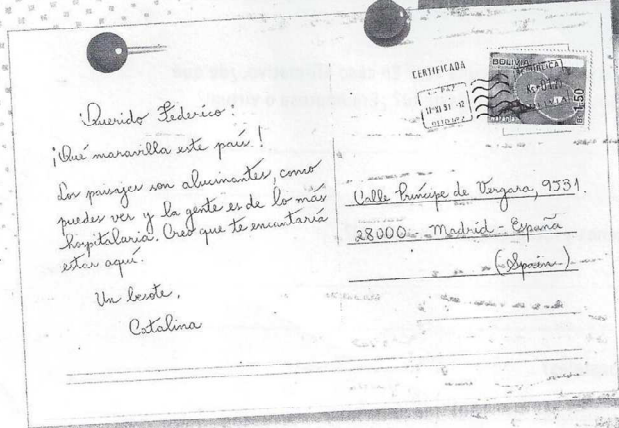 Querido Federico:
¡Qué maravilla este país!
Los paisajes son alucinantes, como
puedes ver y la gente es de lo más
hospitalaria. Creo que te encantaría
estar aquí.
Un besote,
Catalina
CERTIFICADA
BOLIVIA
1.50
Calle Príncipe de Vergara, 9531.
28000 - Madrid - España
(Spain)